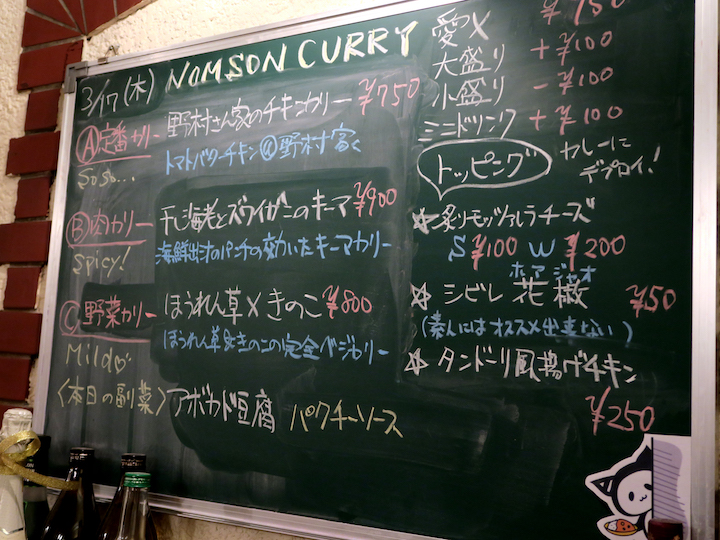 3/17(木) NOMSON CURRY
Ⓐ定番カリー 野村さん家のチキンカリー ¥750
So so... トマトバターチキン@野村家
Ⓑ肉カリー 干し海老とズワイガニのキーマ ¥900
Spicy! 海鮮出汁のパンチの効いたキーマカリー
Ⓒ野菜カリー ほうれん草×きのこ ¥800
Mild♡ ほうれん草&きのこの完全ベジカリー
〈本日の副菜〉アボカド豆腐 パクチーソース
愛× ¥150
大盛り +¥100
小盛り -¥100
ミニドリンク +¥100
トッピング カレーにデプロイ!
☆炙りモッツァレラチーズ
S ¥100 W ¥200
ホアジャオ
☆シビレ花椒 ¥50
(素人にはオススメ出来ない)
☆タンドーリ風揚げチキン
¥250